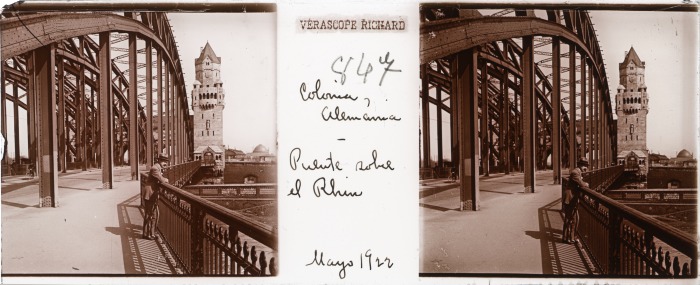 VÉRASCOPE RICHARD
847
Colonia,
Alemania
—
Puente sobre
el Rhin
Mayo 1922